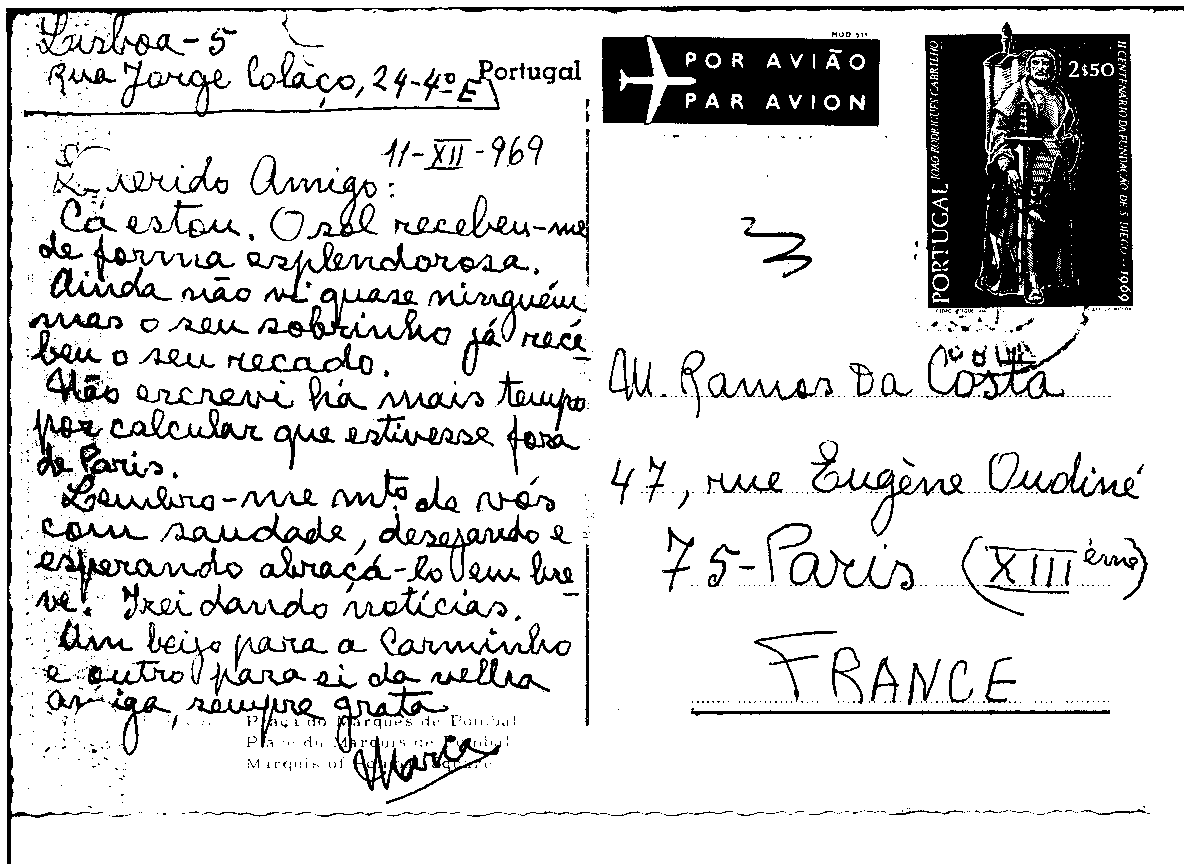 Lisboa-5
Rua Jorge Colaço, 24-4º E
Portugal
11-XII-969
Querido Amigo:
Cá estou. O sol recebeu-me
de forma esplendorosa.
Ainda não vi quase ninguém
mas o seu sobrinho já rece-
beu o seu recado.
Não escrevi há mais tempo
por calcular que estivesse fora
de Paris.
Lembro-me mto. de vós
com saudade, desejando e
esperando abraçá-lo em bre-
ve. Irei dando notícias.
Um beijo para a Carminho
e outro para si da velha
amiga, sempre grata
Maria
Praça do Marquês de Pombal
Place du Marquis de Pombal
Marquis of Pombal Square
MOD 511
POR AVIÃO
PAR AVION
2$50
PORTUGAL
JOÃO RODRIGUES CABRILHO
II CENTENÁRIO DA FUNDAÇÃO DE S. DIEGO - 1969
M. Ramos Da Costa
47, rue Eugène Oudiné
75-Paris (XIIIème)
FRANCE